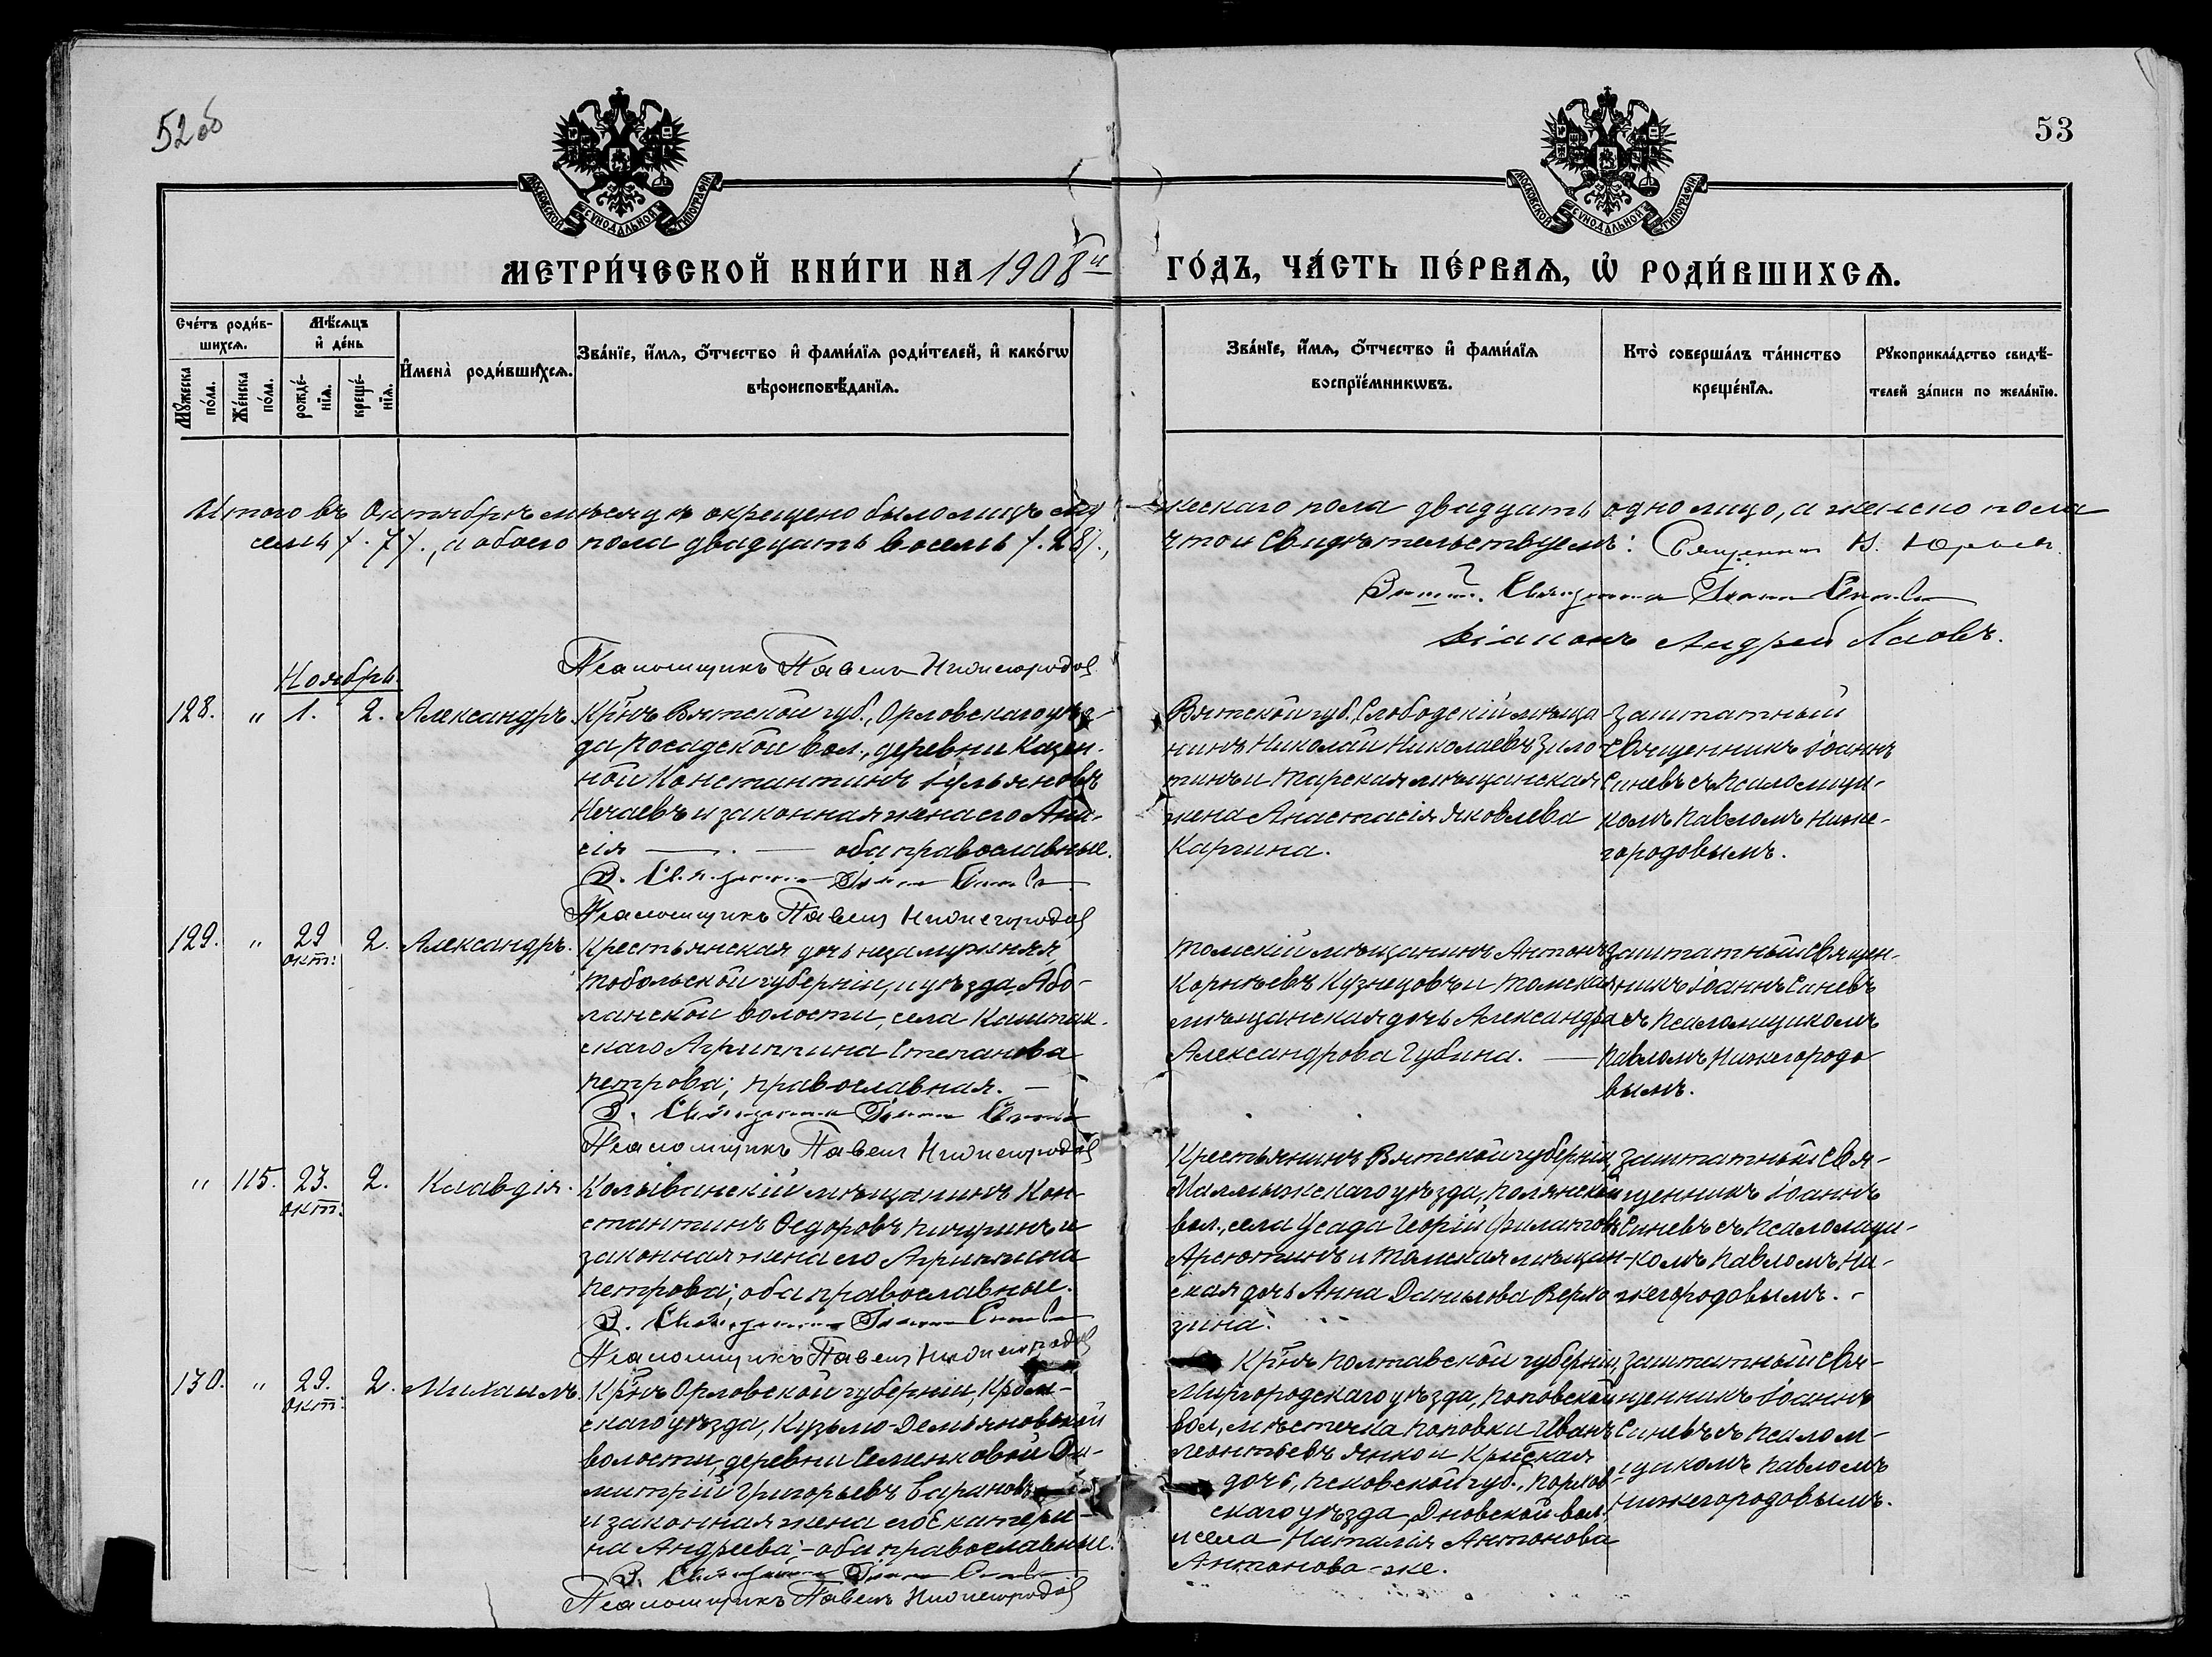 52об
53
МОСКОВСКОЙ СѴНОДАЛЬНОЙ ТИПОГРАФІИ
МОСКОВСКОЙ СѴНОДАЛЬНОЙ ТИПОГРАФІИ
МЕТРИ́ЧЕСКОЙ КНИ́ГИ НА 1908й ГО́ДЪ, ЧА́СТЬ ПЕ́РВАѦ, Ѡ҆ РОДИ́ВШИХСѦ.
Сче́тъ роди́в-
шихсѧ.
Мꙋ́жеска по́ла.
Же́нска по́ла.
Мѣ́сѧцъ
и҆ де́нь
рожде́-
нїѧ.
креще́-
нїѧ.
И҆мена̀ роди́вшихсѧ.
Зва́нїе, и҆́мѧ, ѻ҆́тчество и҆ фами́лїѧ роди́телей, и҆ како́гѡ
вѣроисповѣ́данїѧ.
Зва́нїе, и҆́мѧ, ѻ҆́тчество и҆ фами́лїѧ
воспрїе́мникѡвъ.
Кто̀ соверша́лъ та́инство
креще́нїѧ.
Рꙋкоприкла́дство свидѣ́-
телей за́писи по жела́нїю.
Итого въ Октябрѣ мѣсяцѣ окрещено было лицъ муж-
ескаго пола двадцать одно лицо, а женско пола
семь /. 7 /., а обоего пола двадцать восемь /. 28 /.,
что и свидѣтельствуемъ: Священникъ
Заштат. Священникъ Іоаннъ Синевъ
Діаконъ Андрей
Псаломщикъ Павелъ Нижегородовъ
Ноябрь.
128. " 1. 2. Александръ.
Кр̃нъ Вятской губ., Орловскаго уѣз-
да, Посадской вол., деревни Казен-
ной Константинъ Іульяновъ
Нечаевъ и законная жена его Ани-
сія — . — оба православные.
З. Священникъ Іоаннъ Синевъ
Псаломщикъ Павелъ Нижегородовъ
Вятской губ. Слободскій мѣща-
нинъ Николай Николаевъ Зило-
тинъ и Тарская мѣщанская
жена Анастасія Яковлева
Каргина.
Заштатный
Священникъ Іоаннъ
Синевъ съ Псаломщи-
комъ Павломъ Ниже-
городовымъ.
129. " 29 окт: 2. Александръ.
Крестьянская дочь незамужняя,
Тобольской губерніи, и уѣзда, Або-
ланской волости, села Каштак-
скаго Агриппина Степанова
Петрова; православная. —
З. Священникъ Іоаннъ Синевъ
Псаломщикъ Павелъ Нижегородовъ
Томскій мѣщанинъ Антонъ
Корнѣевъ Кузнецовъ и Томская
мѣщанская дочь Александра
Александрова Губина. —
Заштатный Священ-
никъ Іоаннъ Синевъ
съ Псаломщикомъ
Павломъ Нижегородо-
вымъ.
" 115. 23. окт: 2. Клавдія.
Колыванскій мѣщанинъ Кон-
стантинъ Ѳедоровъ Пичугинъ и
законная жена его Агриппина
Петрова; оба православные.
З. Священникъ Іоаннъ Синевъ
Псаломщикъ Павелъ Нижегородовъ
Крестьянинъ Вятской губерніи,
Малмыжскаго уѣзда, Полянской
вол., села Усада Георгій Филатовъ
Арсютинъ и Томская мѣщан-
ская дочь Анна Данилова Верло-
зина.
Заштатный Свя-
щенникъ Іоаннъ
Синевъ съ Псаломщи-
комъ Павломъ Ни-
жегородовымъ.
130. " 29. окт: 2. Михаилъ.
Кр̃нъ Орловской губерніи, Кром-
скаго уѣзда, Кузьмо-Демьяновской
волости, деревни Семенковой Ди-
митрій Григорьевъ Бариновъ
и законная жена его Екатери-
на Андреева; - оба православные.
З. Священникъ Іоаннъ Синевъ
Псаломщикъ Павелъ Нижегородовъ
Кр̃нъ Полтавской губерніи,
Миргородскаго уѣзда, Поповской
вол., мѣстечка Поповки Иванъ
Леонтьевъ Янко и Кр̃нская
дочь, Псковской губ., Порхов-
скаго уѣзда, Дновской вол.
и села Наталія Антонова
Антонова-же.
Заштатный Свя-
щенникъ Іоаннъ
Синевъ съ Псалом-
щикомъ Павломъ
Нижегородовымъ.